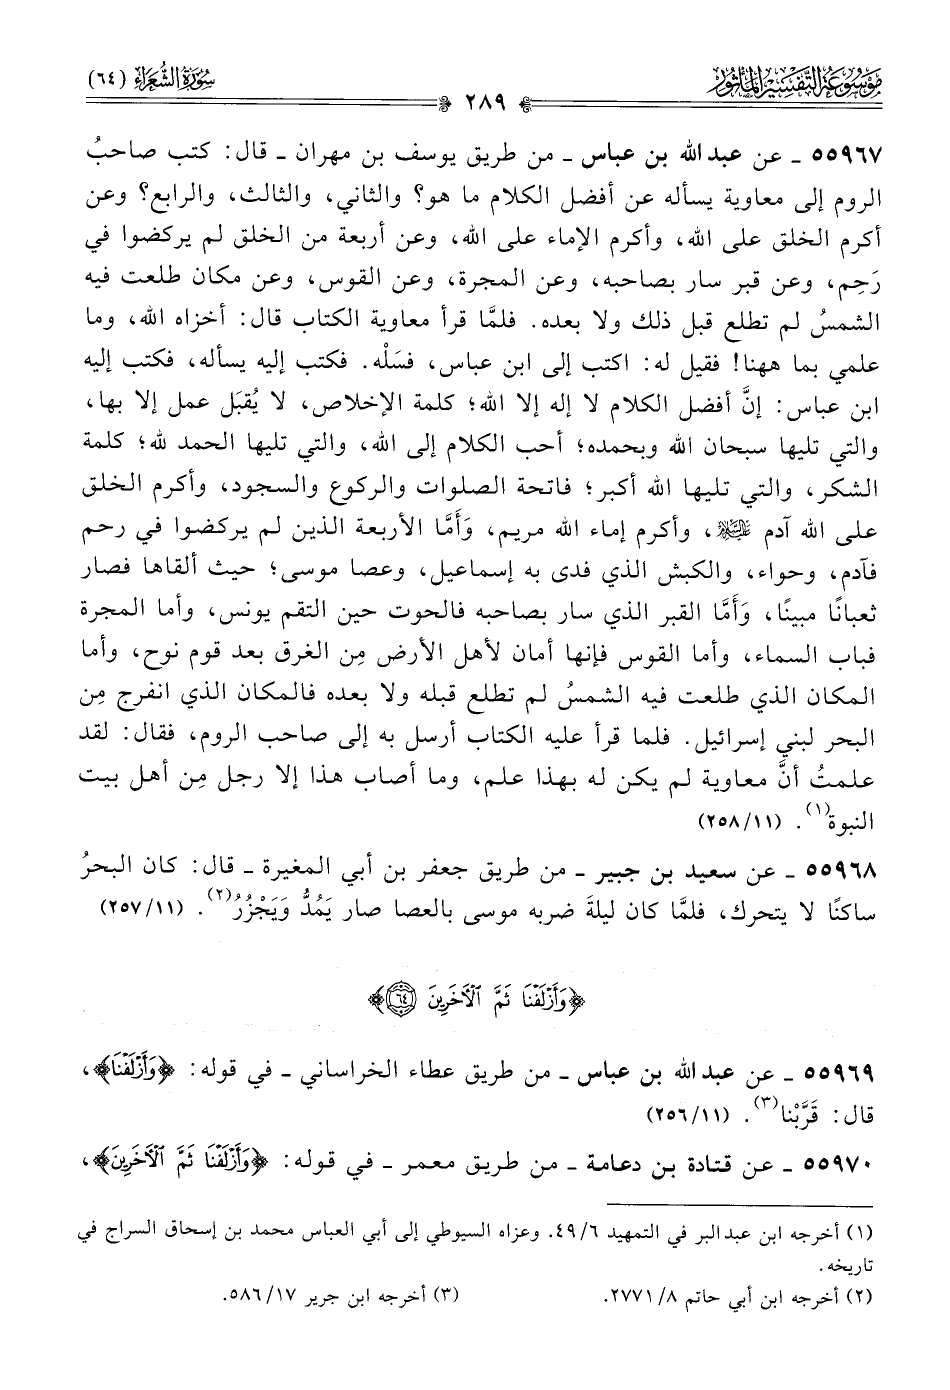 موسوعة التفسير المأثور
سورة الشعراء (٦٤)
٢٨٩
٥٥٩٦٧ ـ عن عبد الله بن عباس ـ من طريق يوسف بن مهران ـ قال: كتب صاحبُ
الروم إلى معاوية يسأله عن أفضل الكلام ما هو؟ والثاني، والثالث، والرابع؟ وعن
أكرم الخلق على الله، وأكرم الإماء على الله، وعن أربعة من الخلق لم يركضوا في
رَحِم، وعن قبر سار بصاحبه، وعن المجرة، وعن القوس، وعن مكان طلعت فيه
الشمسُ لم تطلع قبل ذلك ولا بعده. فلمَّا قرأ معاوية الكتاب قال: أخزاه الله، وما
علمي بما ههنا! فقيل له: اكتب إلى ابن عباس، فسَلْه. فكتب إليه يسأله، فكتب إليه
ابن عباس: إنَّ أفضل الكلام لا إله إلا الله؛ كلمة الإخلاص، لا يُقبَل عمل إلا بها،
والتي تليها سبحان الله وبحمده؛ أحب الكلام إلى الله، والتي تليها الحمد لله؛ كلمة
الشكر، والتي تليها الله أكبر؛ فاتحة الصلوات والركوع والسجود، وأكرم الخلق
على الله آدم عليه السلام، وأكرم إماء الله مريم، وَأَمَّا الأربعة الذين لم يركضوا في رحم
فآدم، وحواء، والكبش الذي فدى به إسماعيل، وعصا موسى؛ حيث ألقاها فصار
ثعبانًا مبينًا، وَأَمَّا القبر الذي سار بصاحبه فالحوت حين التقم يونس، وأما المجرة
فباب السماء، وأما القوس فإنها أمان لأهل الأرض مِن الغرق بعد قوم نوح، وأما
المكان الذي طلعت فيه الشمسُ لم تطلع قبله ولا بعده فالمكان الذي انفرج مِن
البحر لبني إسرائيل. فلما قرأ عليه الكتاب أرسل به إلى صاحب الروم، فقال: لقد
علمتُ أنَّ معاوية لم يكن له بهذا علم، وما أصاب هذا إلا رجل مِن أهل بيت
النبوة(١). (٢٥٨/١١)
٥٥٩٦٨ ـ عن سعيد بن جبير ـ من طريق جعفر بن أبي المغيرة ـ قال: كان البحرُ
ساكنًا لا يتحرك، فلمَّا كان ليلةَ ضربه موسى بالعصا صار يَمُدُّ وَيَجْزُرُ(٢). (٢٥٧/١١)
﴿وَأَزْلَفْنَا ثَمَّ ٱلْآخَرِينَ ٦٤﴾
٥٥٩٦٩ ـ عن عبد الله بن عباس ـ من طريق عطاء الخراساني ـ في قوله: ﴿وَأَزْلَفْنَا﴾،
قال: قَرَّبْنا(٣). (٢٥٦/١١)
٥٥٩٧٠ ـ عن قتادة بن دعامة ـ من طريق معمر ـ في قوله: ﴿وَأَزْلَفْنَا ثَمَّ ٱلْآخَرِينَ﴾،
(١) أخرجه ابن عبد البر في التمهيد ٤٩/٦. وعزاه السيوطي إلى أبي العباس محمد بن إسحاق السراج في
تاريخه.
(٢) أخرجه ابن أبي حاتم ٢٧٧١/٨.
(٣) أخرجه ابن جرير ٥٨٦/١٧.